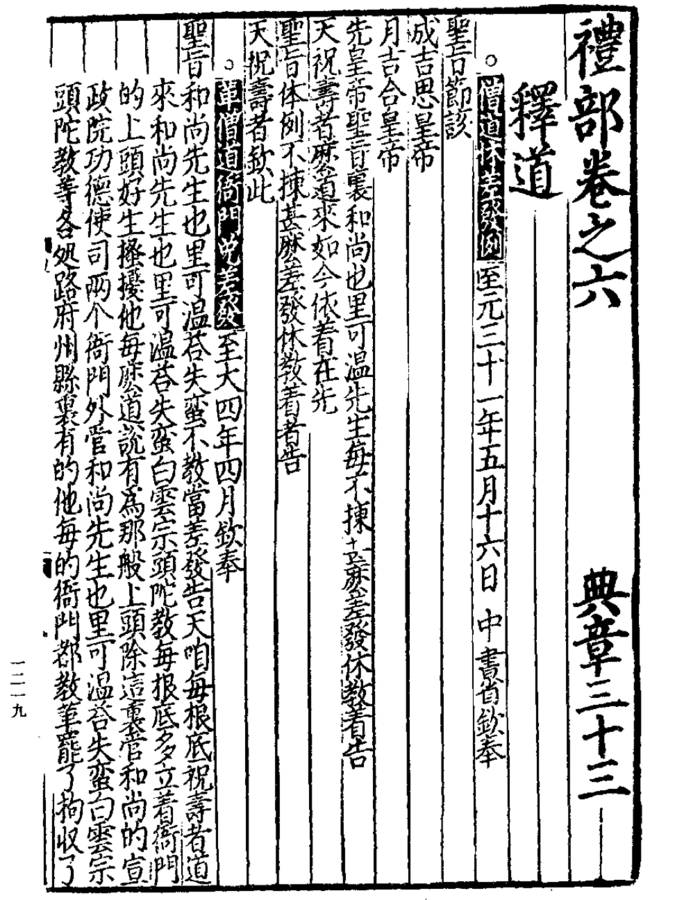 禮部卷之六　典章三十三
釋道
○僧道休差發例至元三十一年五月十六日中書省欽奉
聖旨節該
成吉思皇帝
月吉合皇帝
先皇帝聖旨裏和尚也里可温先生每不揀甚麽差發休教着告
天祝壽者麽道來如今依着在先
聖旨体例不揀甚麽差發休教着者告
天祝壽者欽此
○革僧道衙門免差發至大四年四月欽奉
聖旨和尚先生也里可温荅失蛮不教當差發告天咱每根底祝壽者道
來和尚先生也里可温荅失蛮白雲宗頭陀教每根底多立着衙門
的上頭好生搔擾他每麽道說有爲那般上頭除這裏管和尚的宣
政院功德使司兩个衙門外管和尚先生也里可温荅失蛮白雲宗
頭陀教等各処路府州縣裏有的他每的衙門都教革罷了拘收了
一二一九